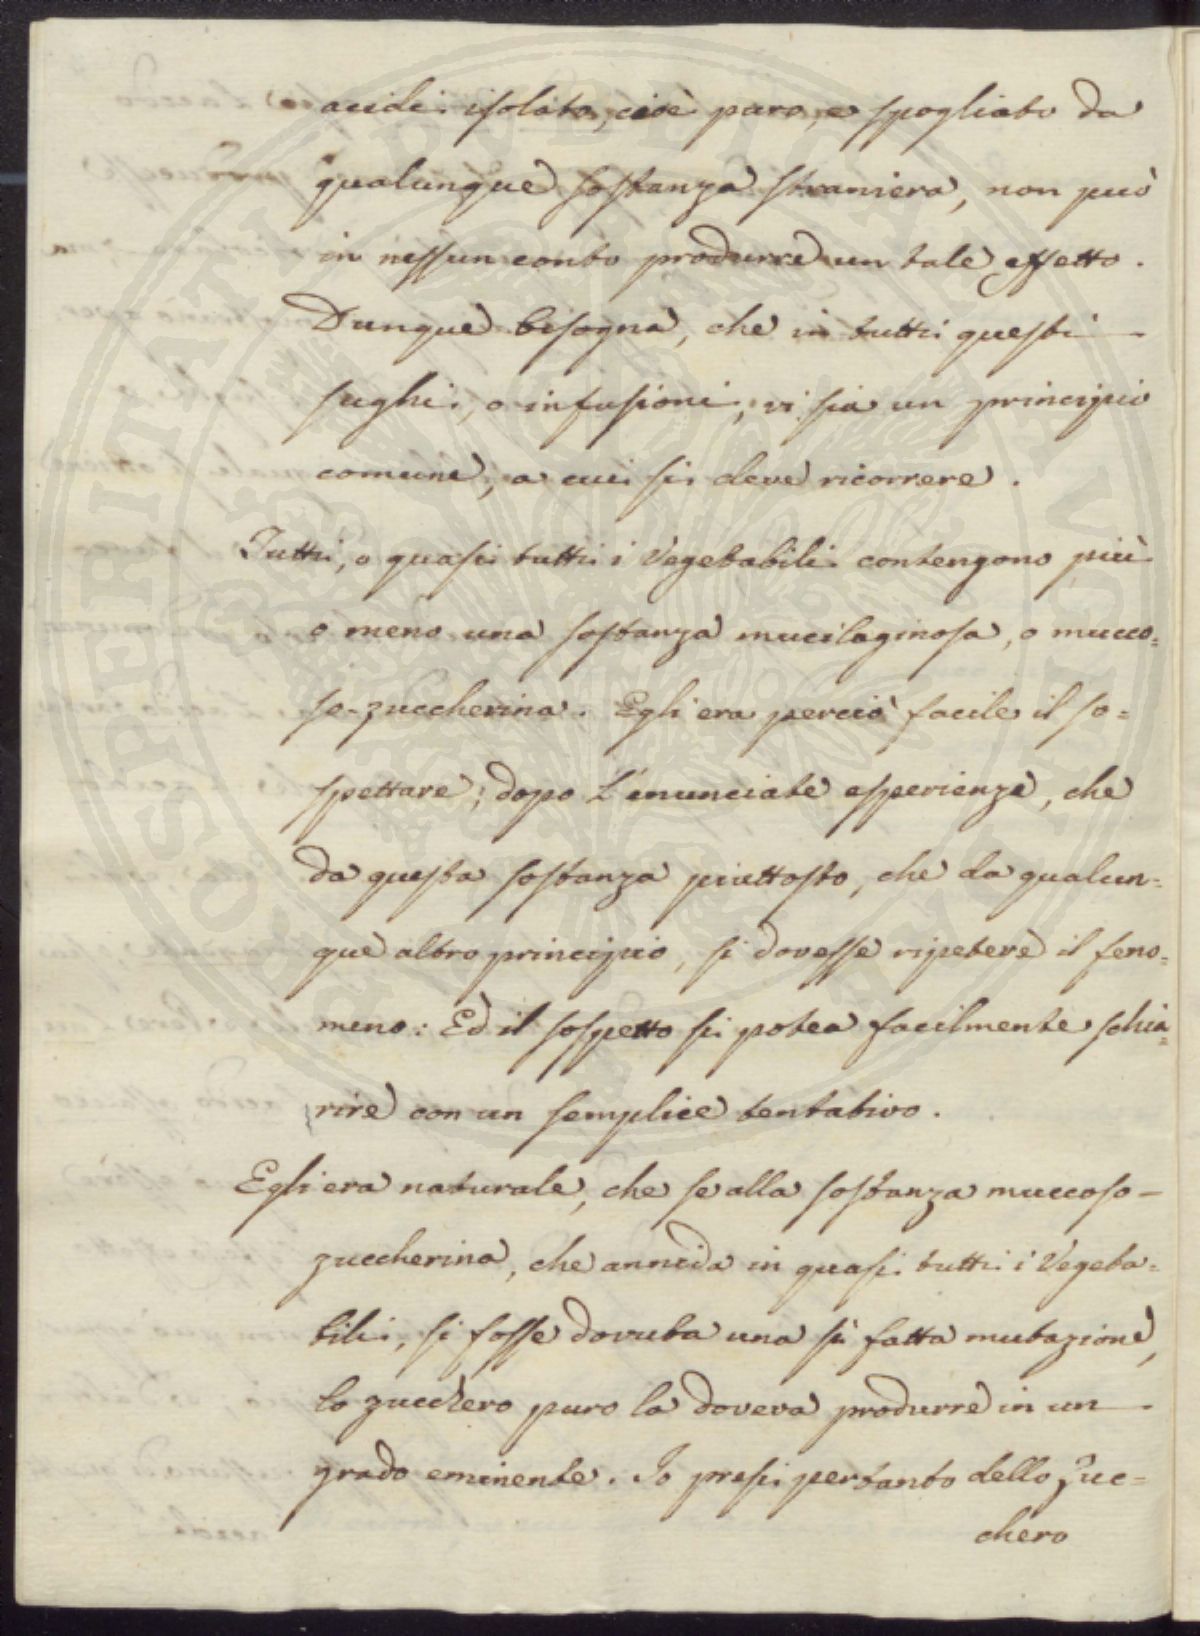 acidi isolato, cioè puro, e spogliato da
qualunque sostanza straniera, non può
in nessun conto produrre un tale effetto.
Dunque bisogna, che in tutti questi
sughi, o infusioni, vi sia un principio
comune, a cui si deve ricorrere.
Tutti, o quasi tutti i Vegetabili contengono più
o meno una sostanza mucilaginosa, o mucco=
so-zuccherina. Egli era perciò facile il so=
spettare; dopo l'enunciate esperienze, che
da questa sostanza piuttosto, che da qualun=
que altro principio, si dovesse ripetere il feno=
meno: Ed il sospetto si potea facilmente schia=
rire con un semplice tentativo.
Egli era naturale, che se alla sostanza muccoso-
zuccherina, che annida in quasi tutti i Vegeta=
bili, si fosse dovuta una sì fatta mutazione,
lo zucchero puro la doveva produrre in un
grado eminente. Io presi pertanto dello Zuc=
chero